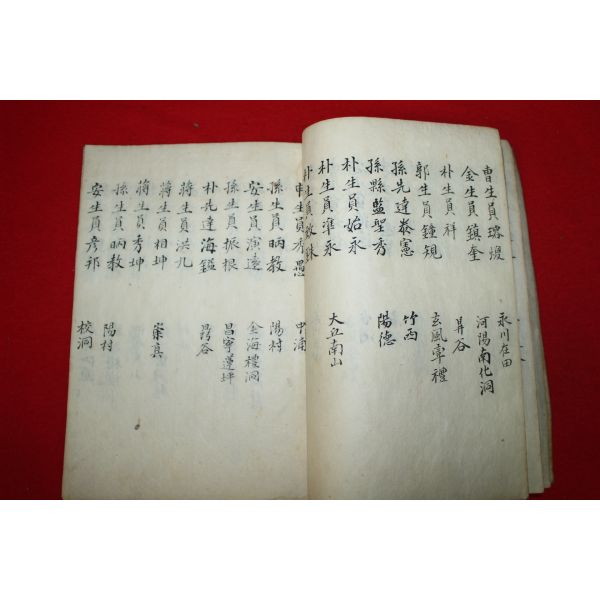 曺生員璟燮 永川庄田
金生員鎮奎 河陽南化洞
朴生員祥 昇谷
郭生員鍾規 玄風率禮
孫先達泰憲 竹西
孫縣監聖秀 陽德
朴生員始永
朴生員準永 大丘南山
朴生員
申生員秀愚 中浦
孫生員昞教 陽村
安生員演遠 金海禮洞
孫生員振根 昌寧蓬坪
朴先達海鎰 昜谷
蔣生員洪九
蔣生員相坤 崇真
蔣生員秀坤
孫生員昞教 陽村
安生員彦邦 校洞